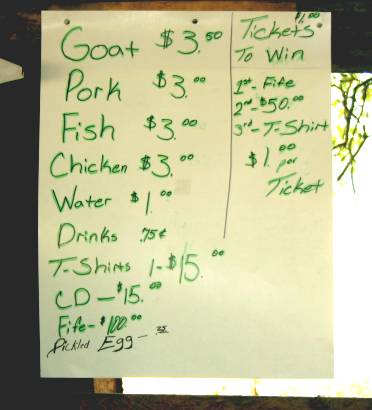 Goat $3.50
Pork $3.00
Fish $3.00
Chicken $3.00
Water $1.00
Drinks .75¢
T-Shirts 1-$15.00
CD - $15.00
Fife - $100.00
Pickled Egg - .35
Tickets $1.00
To Win
1st - Fife
2nd - $50.00
3rd - T-Shirt
$1.00
per
Ticket